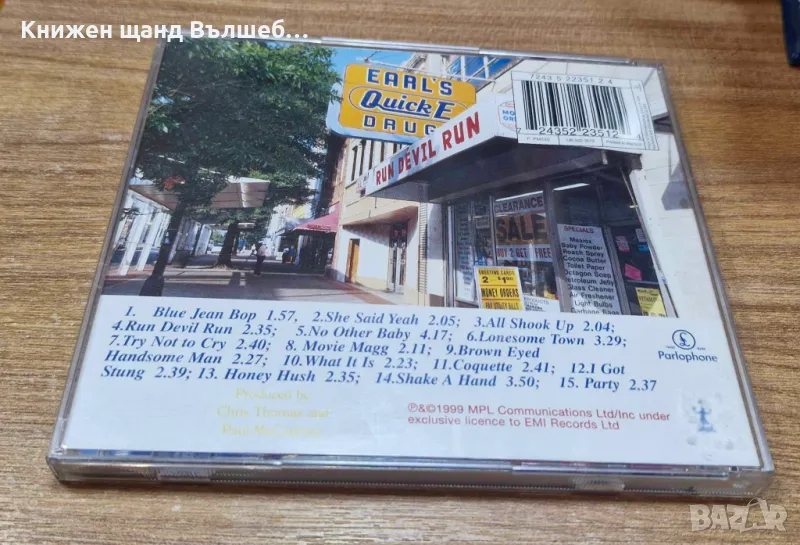 Книжен щанд Вълшеб...
EARL'S
Quick E
DRUG
RUN DEVIL RUN
7243 5 22351 2 4
7 24352 23512 4
CLEARANCE
SALE
BUY 2 GET 1 FREE
GREETING CARDS
MONEY ORDERS
SPECIALS
Baby Powder
Cocoa Butter
Toilet Paper
Octagon Soap
Petroleum Jelly
Glass Cleaner
Air Freshener
Light Bulbs
Garbage Bags
1. Blue Jean Bop 1.57, 2.She Said Yeah 2.05; 3.All Shook Up 2.04;
4.Run Devil Run 2.35; 5.No Other Baby 4.17; 6.Lonesome Town 3.29;
7.Try Not to Cry 2.40; 8. Movie Magg 2.11; 9.Brown Eyed
Handsome Man 2.27; 10.What It Is 2.23; 11.Coquette 2.41; 12.I Got
Stung 2.39; 13. Honey Hush 2.35; 14.Shake A Hand 3.50; 15. Party 2.37
Parlophone
Produced by
Chris Thomas and
Paul McCartney
℗&©1999 MPL Communications Ltd/Inc under
exclusive licence to EMI Records Ltd
BAZAR